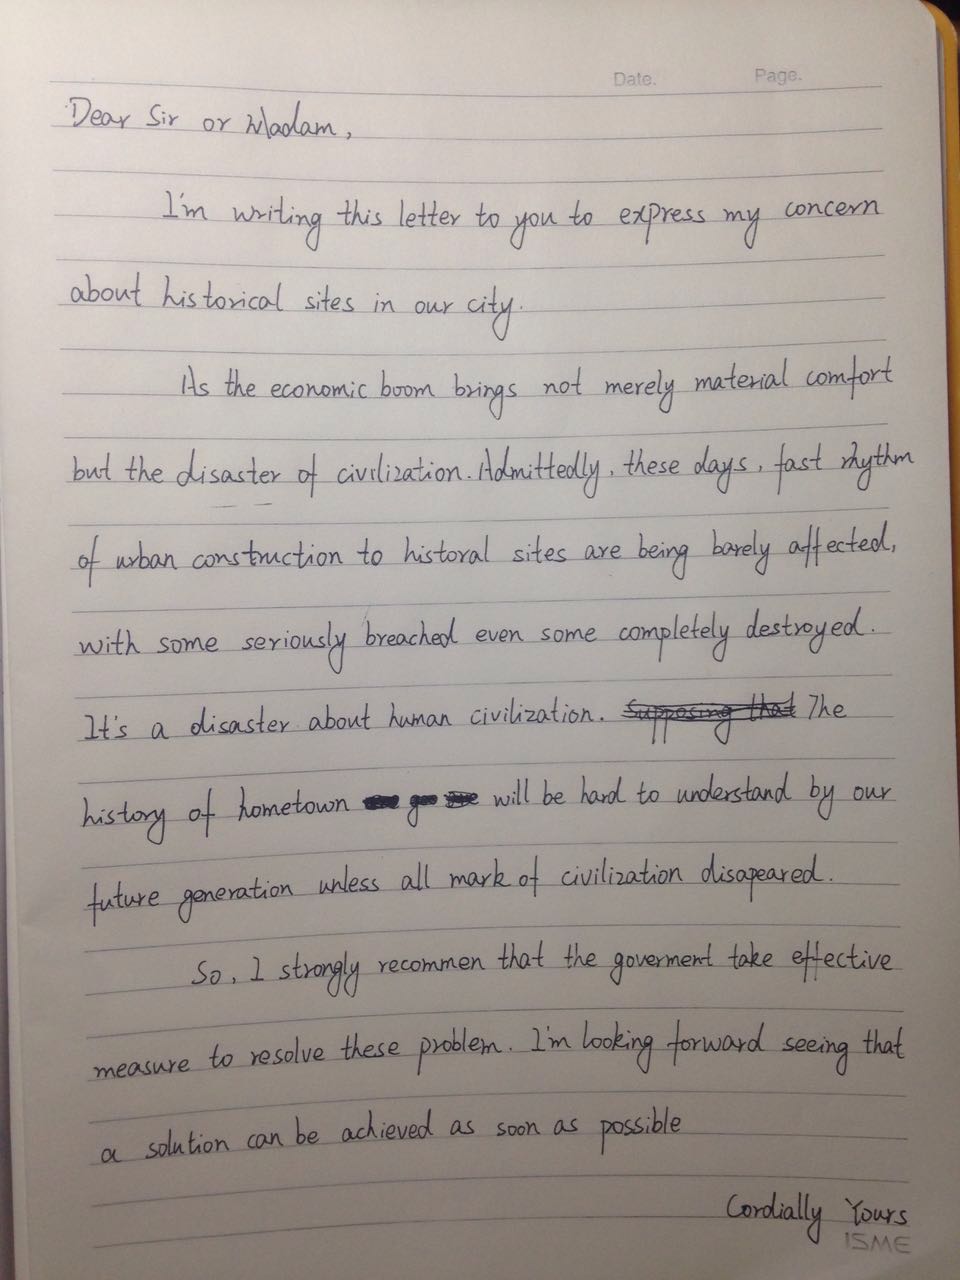 Date. Page.
Dear Sir or Madam,
I'm writing this letter to you to express my concern
about historical sites in our city.
As the economic boom brings not merely material comfort
but the disaster of civilization. Admittedly, these days, fast rhythm
of urban construction to historal sites are being barely affected,
with some seriously breached even some completely destroyed.
It's a disaster about human civilization. Supposing that The
history of hometown will be hard to understand by our
future generation unless all mark of civilization disapeared.
So, I strongly recommen that the goverment take effective
measure to resolve these problem. I'm looking forward seeing that
a solution can be achieved as soon as possible
Cordially Yours
ISME